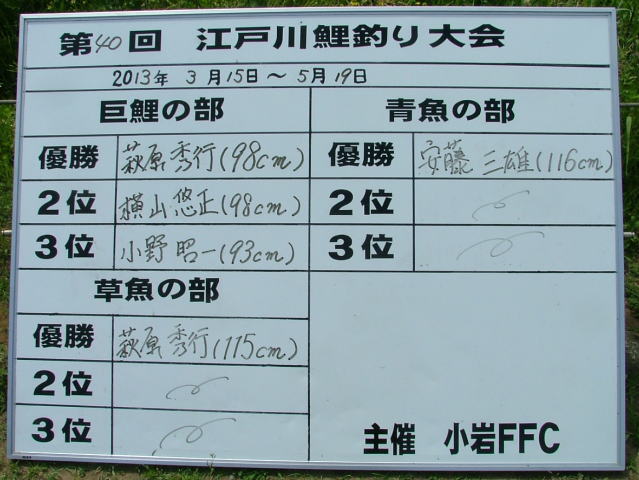 第40回 江戸川鯉釣り大会
2013年 3月15日～5月19日
巨鯉の部
優勝 萩原秀行(98cm)
2位 横山悠正(98cm)
3位 小野昭一(93cm)
青魚の部
優勝 安藤三雄(116cm)
2位
3位
草魚の部
優勝 萩原秀行(115cm)
2位
3位
主催 小岩FFC